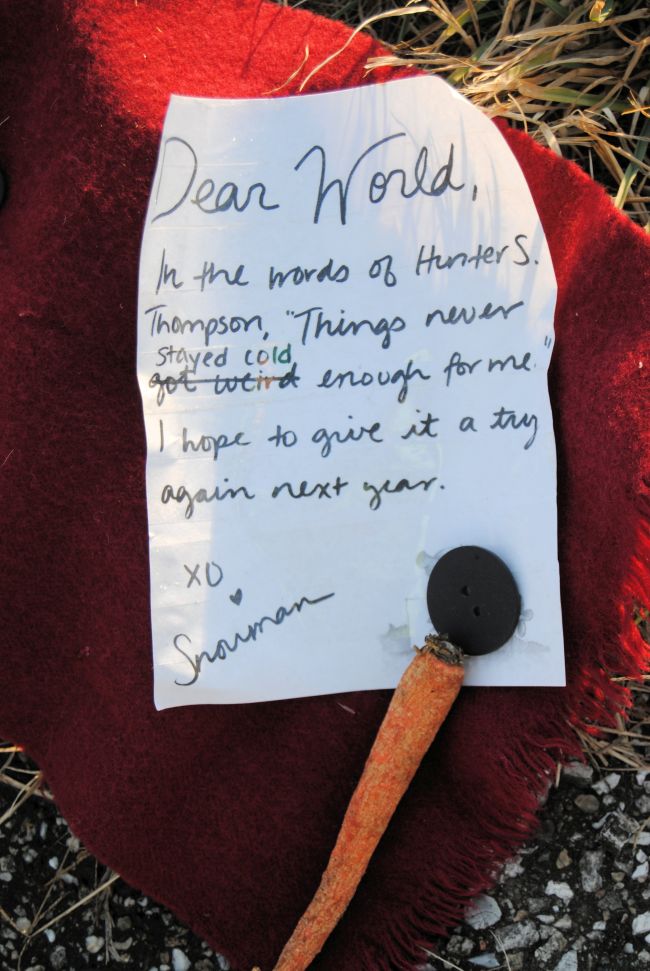 Dear World,
In the words of Hunter S.
Thompson, "Things never
stayed cold
got weird enough for me."
I hope to give it a try
again next year.
XO
Snowman